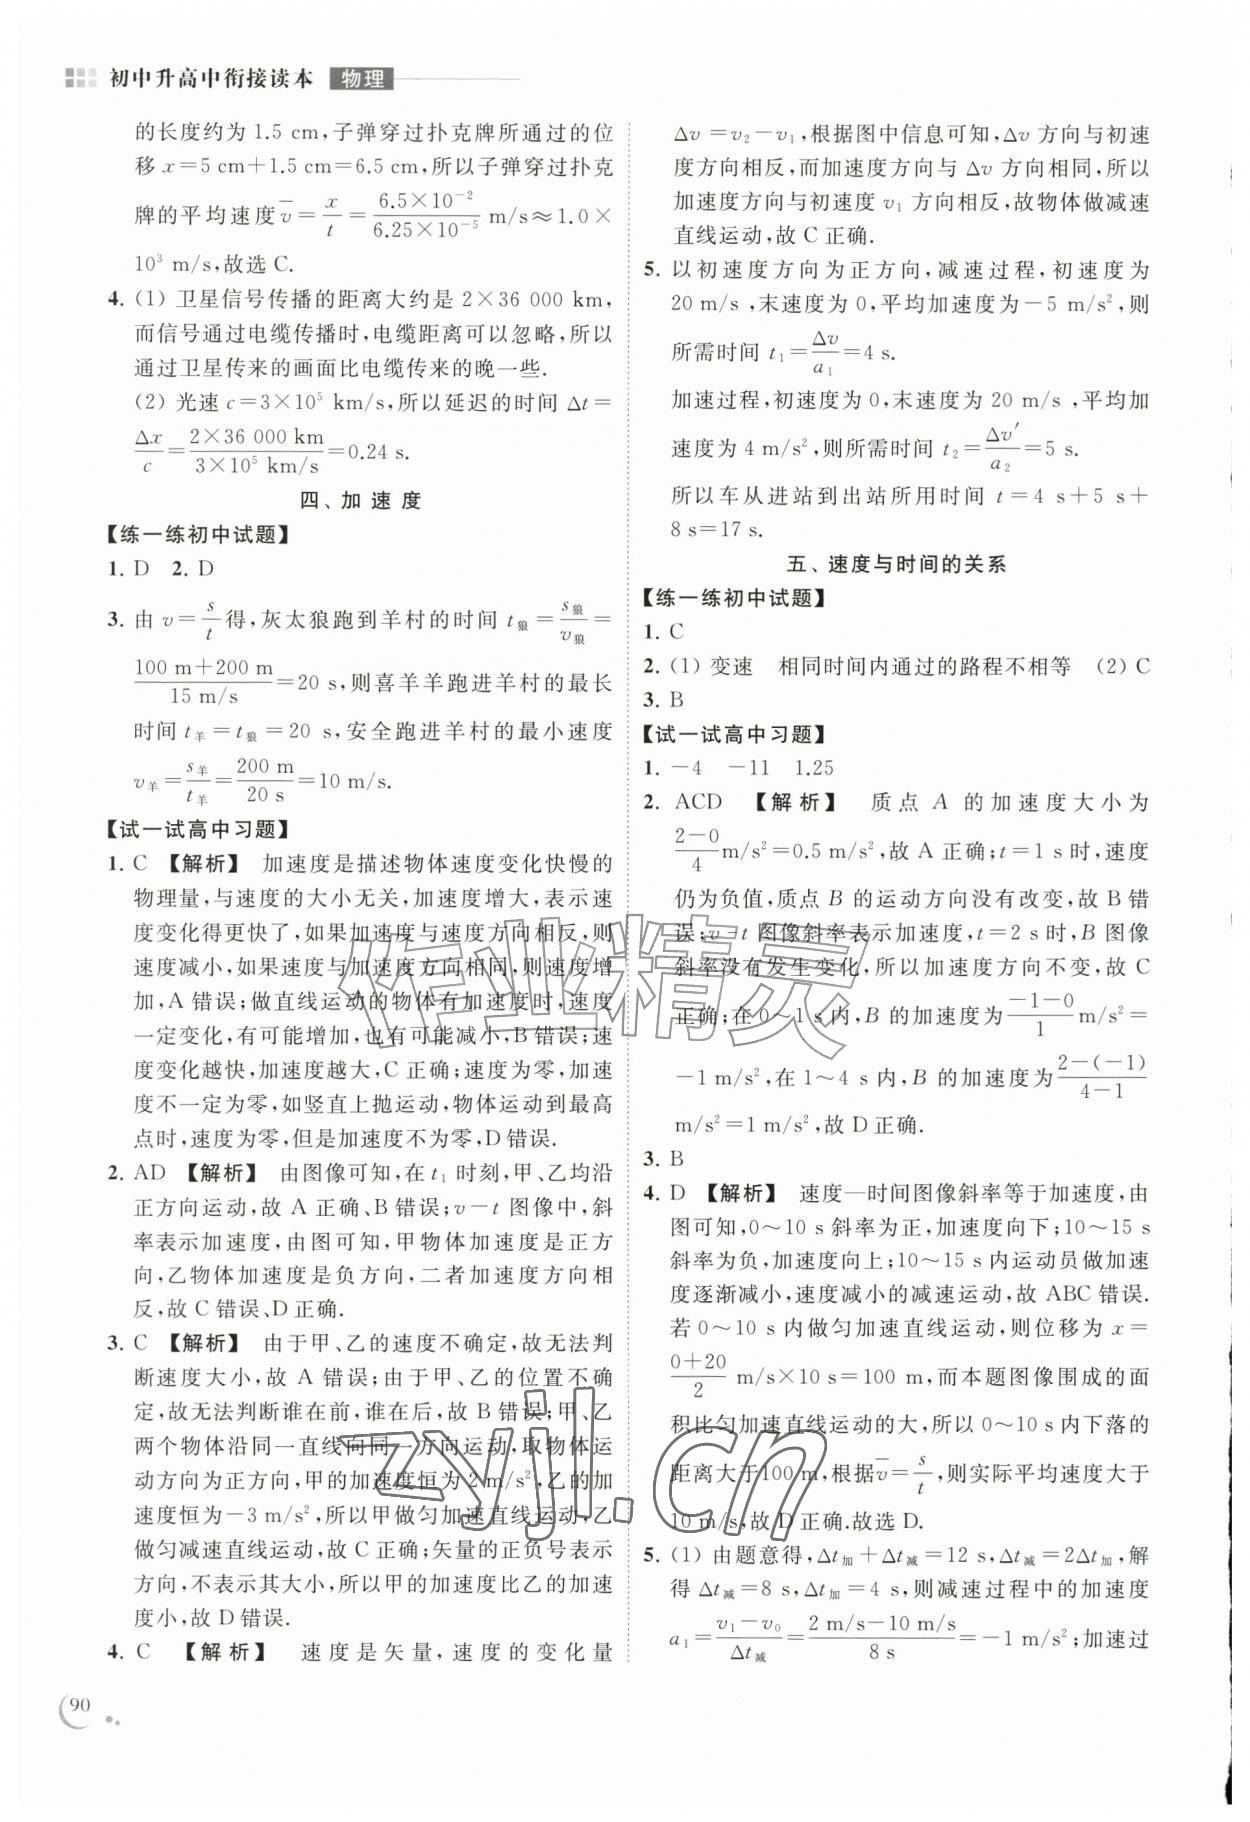 初中升高中衔接读本 物理
的长度约为 1.5 cm,子弹穿过扑克牌所通过的位
移 x=5 cm+1.5 cm=6.5 cm,所以子弹穿过扑克
牌的平均速度 v̄ = x/t = (6.5×10⁻²)/(6.25×10⁻⁵) m/s≈1.0×
10³ m/s,故选 C.
4. (1) 卫星信号传播的距离大约是 2×36 000 km,
而信号通过电缆传播时,电缆距离可以忽略,所以
通过卫星传来的画面比电缆传来的晚一些.
(2) 光速 c=3×10⁵ km/s,所以延迟的时间 Δt=
Δx/c = (2×36 000 km)/(3×10⁵ km/s) =0.24 s.
四、加速度
【练一练初中试题】
1. D 2. D
3. 由 v= s/t 得,灰太狼跑到羊村的时间 t狼 = s狼/v狼 =
(100 m+200 m)/(15 m/s) =20 s,则喜羊羊跑进羊村的最长
时间 t羊=t狼=20 s,安全跑进羊村的最小速度
v羊 = s羊/t羊 = 200 m/20 s =10 m/s.
【试一试高中习题】
1. C 【解析】 加速度是描述物体速度变化快慢的
物理量,与速度的大小无关,加速度增大,表示速
度变化得更快了,如果加速度与速度方向相反,则
速度减小,如果速度与加速度方向相同,则速度增
加,A 错误;做直线运动的物体有加速度时,速度
一定变化,有可能增加,也有可能减小,B 错误;速
度变化越快,加速度越大,C 正确;速度为零,加速
度不一定为零,如竖直上抛运动,物体运动到最高
点时,速度为零,但是加速度不为零,D 错误.
2. AD 【解析】 由图像可知,在 t₁ 时刻,甲、乙均沿
正方向运动,故 A 正确、B 错误;v-t 图像中,斜
率表示加速度,由图可知,甲物体加速度是正方
向,乙物体加速度是负方向,二者加速度方向相
反,故 C 错误、D 正确.
3. C 【解析】 由于甲、乙的速度不确定,故无法判
断速度大小,故 A 错误;由于甲、乙的位置不确
定,故无法判断谁在前,谁在后,故 B 错误;甲、乙
两个物体沿同一直线向同一方向运动,取物体运
动方向为正方向,甲的加速度恒为 2 m/s²,乙的加
速度恒为-3 m/s²,所以甲做匀加速直线运动,乙
做匀减速直线运动,故 C 正确;矢量的正负号表示
方向,不表示其大小,所以甲的加速度比乙的加速
度小,故 D 错误.
4. C 【解析】 速度是矢量,速度的变化量
Δv=v₂-v₁,根据图中信息可知,Δv 方向与初速
度方向相反,而加速度方向与 Δv 方向相同,所以
加速度方向与初速度 v₁ 方向相反,故物体做减速
直线运动,故 C 正确.
5. 以初速度方向为正方向,减速过程,初速度为
20 m/s,末速度为 0,平均加速度为-5 m/s²,则
所需时间 t₁= Δv/a₁ =4 s.
加速过程,初速度为 0,末速度为 20 m/s,平均加
速度为 4 m/s²,则所需时间 t₂= Δv′/a₂ =5 s.
所以车从进站到出站所用时间 t=4 s+5 s+
8 s=17 s.
五、速度与时间的关系
【练一练初中试题】
1. C
2. (1) 变速 相同时间内通过的路程不相等 (2) C
3. B
【试一试高中习题】
1. -4 -11 1.25
2. ACD 【解析】 质点 A 的加速度大小为
(2-0)/4 m/s²=0.5 m/s²,故 A 正确;t=1 s 时,速度
仍为负值,质点 B 的运动方向没有改变,故 B 错
误;v-t 图像斜率表示加速度,t=2 s时,B 图像
斜率没有发生变化,所以加速度方向不变,故 C
正确;在 0~1 s 内,B 的加速度为 (-1-0)/1 m/s²=
-1 m/s²,在 1~4 s 内,B 的加速度为 (2-(-1))/(4-1)
m/s²=1 m/s²,故 D 正确.
3. B
4. D 【解析】 速度—时间图像斜率等于加速度,由
图可知,0~10 s 斜率为正,加速度向下;10~15 s
斜率为负,加速度向上;10~15 s 内运动员做加速
度逐渐减小,速度减小的减速运动,故 ABC 错误.
若 0~10 s 内做匀加速直线运动,则位移为 x=
(0+20)/2 m/s×10 s=100 m,而本题图像围成的面
积比匀加速直线运动的大,所以 0~10 s 内下落的
距离大于100 m,根据 v̄ = s/t,则实际平均速度大于
10 m/s,故 D 正确.故选 D.
5. (1) 由题意得,Δt加+Δt减=12 s,Δt减=2Δt加,解
得 Δt减=8 s,Δt加=4 s,则减速过程中的加速度
a₁= (v₁-v₀)/Δt减 = (2 m/s-10 m/s)/(8 s) =-1 m/s²;加速过
90
作业精灵
zyjl.cn